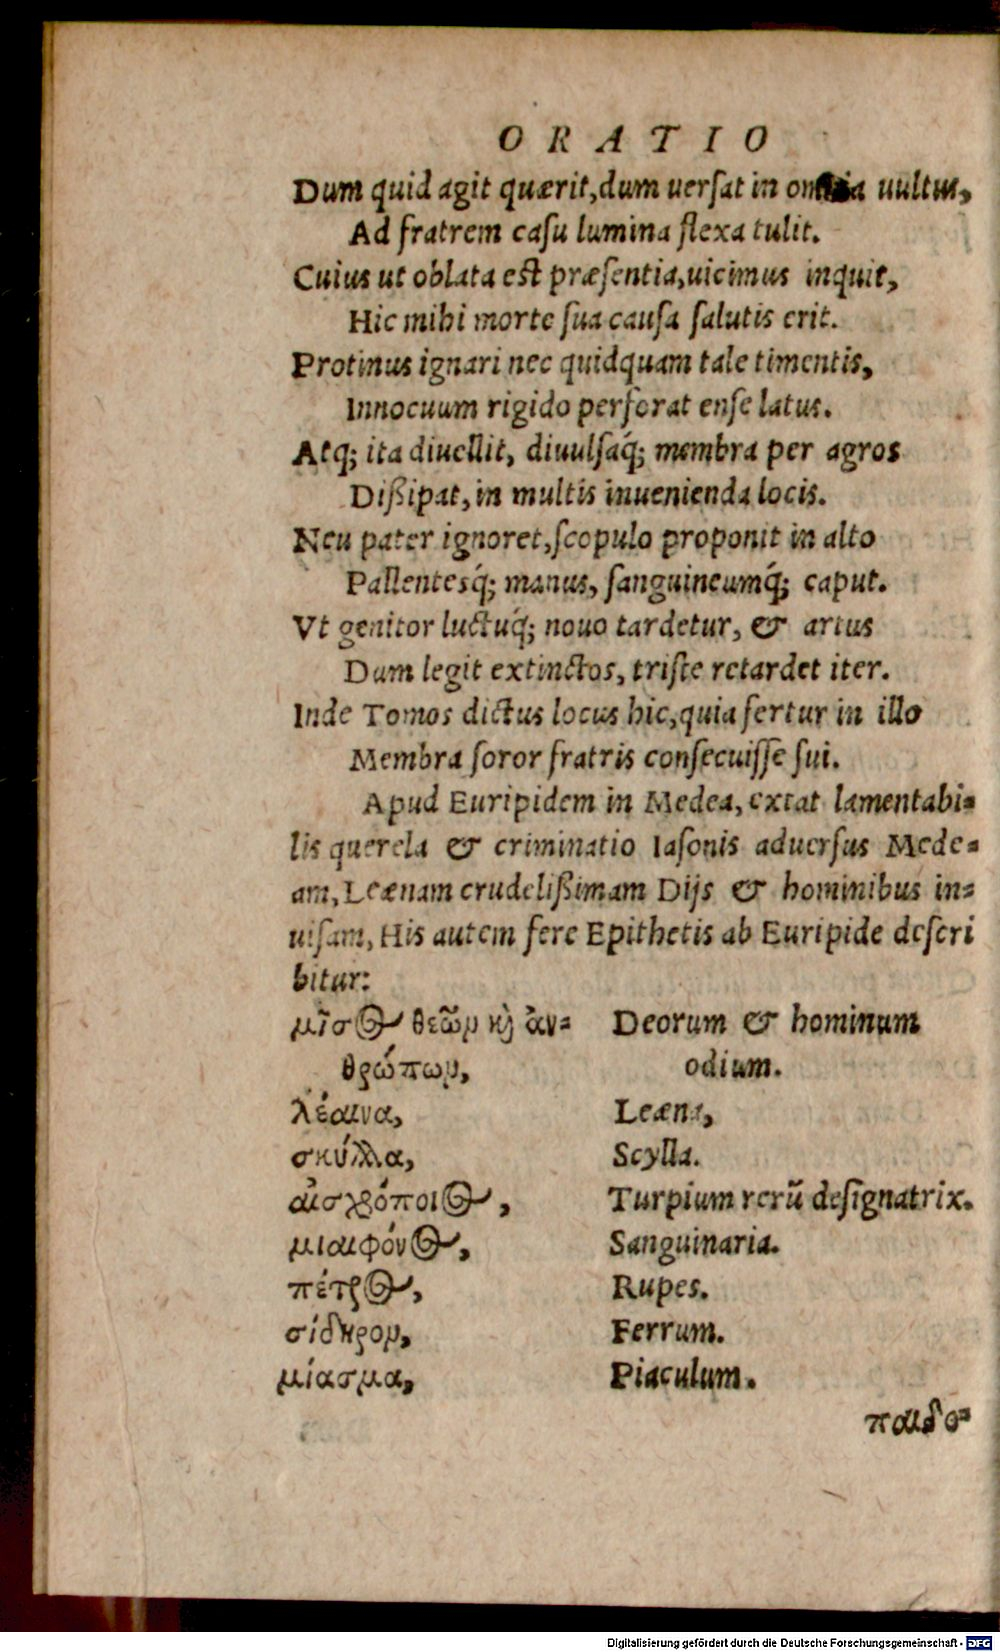 ORATIO
Dum quid agit quærit, dum uerſat in omnia uultus,
Ad fratrem caſu lumina flexa tulit.
Cuius ut oblata est præſentia, uicimus inquit,
Hic mihi morte ſua cauſa ſalutis erit.
Protinus ignari nec quidquam tale timentis,
Innocuum rigido perforat enſe latus.
Atq; ita diuellit, diuulſaq́; membra per agros
Dißipat, in multis inuenienda locis.
Neu pater ignoret, ſcopulo proponit in alto
Pallentesq́; manus, ſanguineumq́; caput.
Vt genitor luctuq́; nouo tardetur, & artus
Dum legit extinctos, triſte retardet iter.
Inde Tomos dictus locus hic, quia fertur in illo
Membra ſoror fratris conſecuiſſe ſui.
Apud Euripidem in Medea, extat lamentabi=
lis querela & criminatio Iaſonis aduerſus Mede=
am, Leænam crudelißimam Dijs & hominibus in=
uiſam, His autem fere Epithetis ab Euripide deſcri
bitur:
μῖσος θεῶν καὶ ἀν= Deorum & hominum
θρώπων, odium.
λέαινα, Leæna,
σκύλλα, Scylla.
αἰσχρόποιος, Turpium rerū deſignatrix.
μιαιφόνος, Sanguinaria.
πέτρος, Rupes.
σίδηρον, Ferrum.
μίασμα, Piaculum.
παιδο=
Digitalisierung gefördert durch die Deutsche Forschungsgemeinschaft - DFG